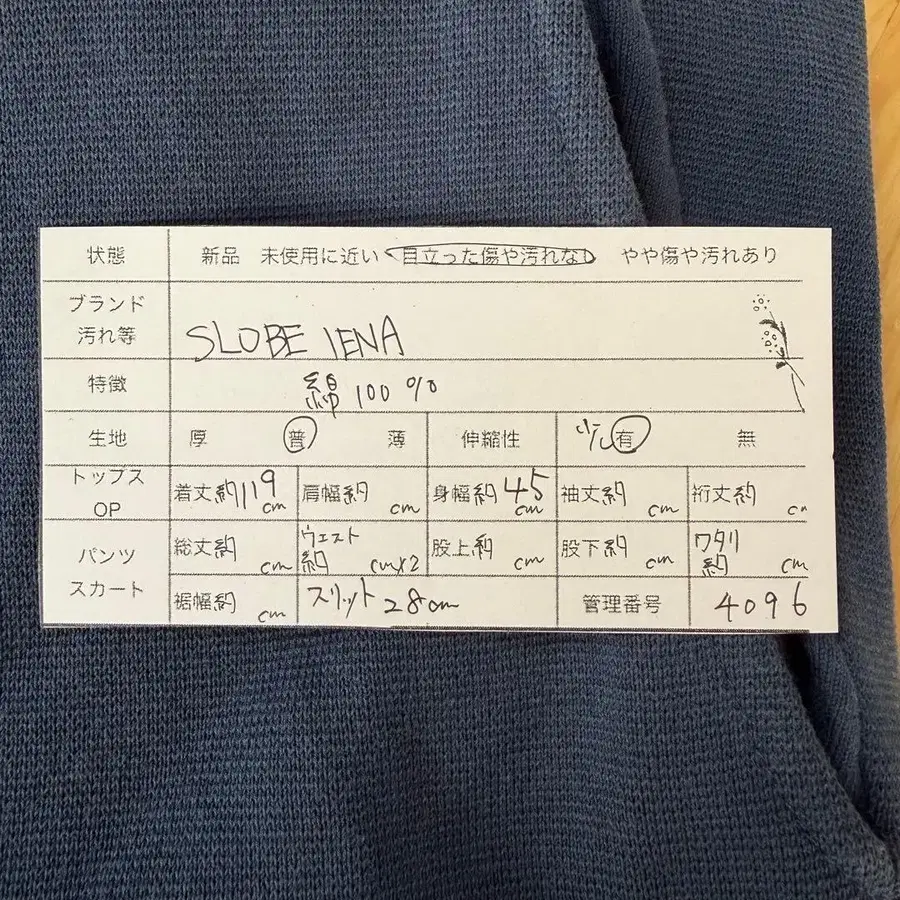 状態 新品 未使用に近い 目立った傷や汚れなし やや傷や汚れあり
ブランド
汚れ等 SLOBE IENA
特徴 綿100%
生地 厚 普 薄 伸縮性 少し有 無
トップス
OP 着丈約119cm 肩幅約 cm 身幅約45cm 袖丈約 cm 裄丈約 cm
パンツ
スカート 総丈約 cm ウエスト約 cm×2 股上約 cm 股下約 cm ワタリ約 cm
裾幅約 cm スリット28cm 管理番号 4096